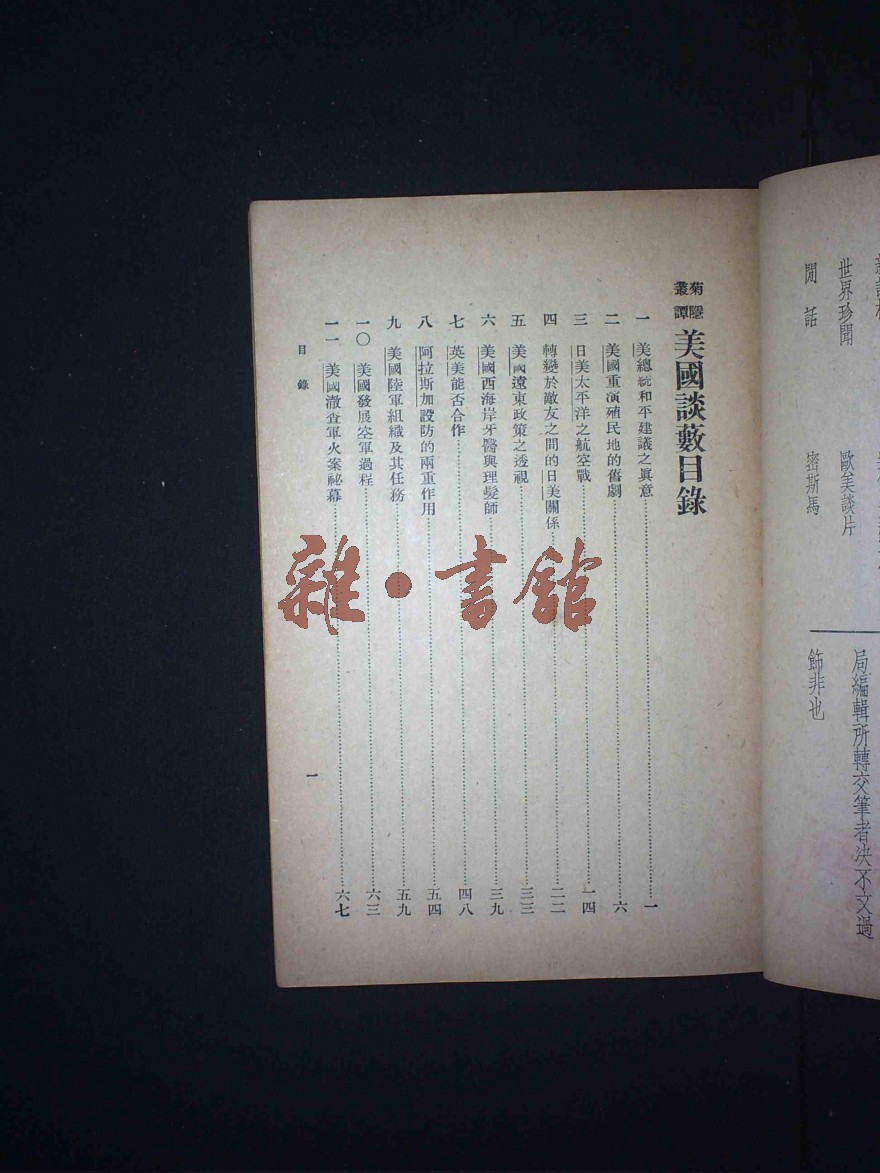 世界珍聞　歐美談片
閒話　密斯馬
局編輯所轉交筆者決不文過
飾非也
菊隱叢譚 美國談藪目錄
一　美總統和平建議之眞意……一
二　美國重演殖民地的舊劇……六
三　日美太平洋之航空戰……一四
四　轉變於敵友之間的日美關係……二二
五　美國遠東政策之透視……三三
六　美國西海岸牙醫與理髮師……三九
七　英美能否合作……四八
八　阿拉斯加設防的兩重作用……五四
九　美國陸軍組織及其任務……五九
一〇　美國發展空軍過程……六三
一一　美國澈查軍火案祕幕……六七
目錄
一
雜·書館